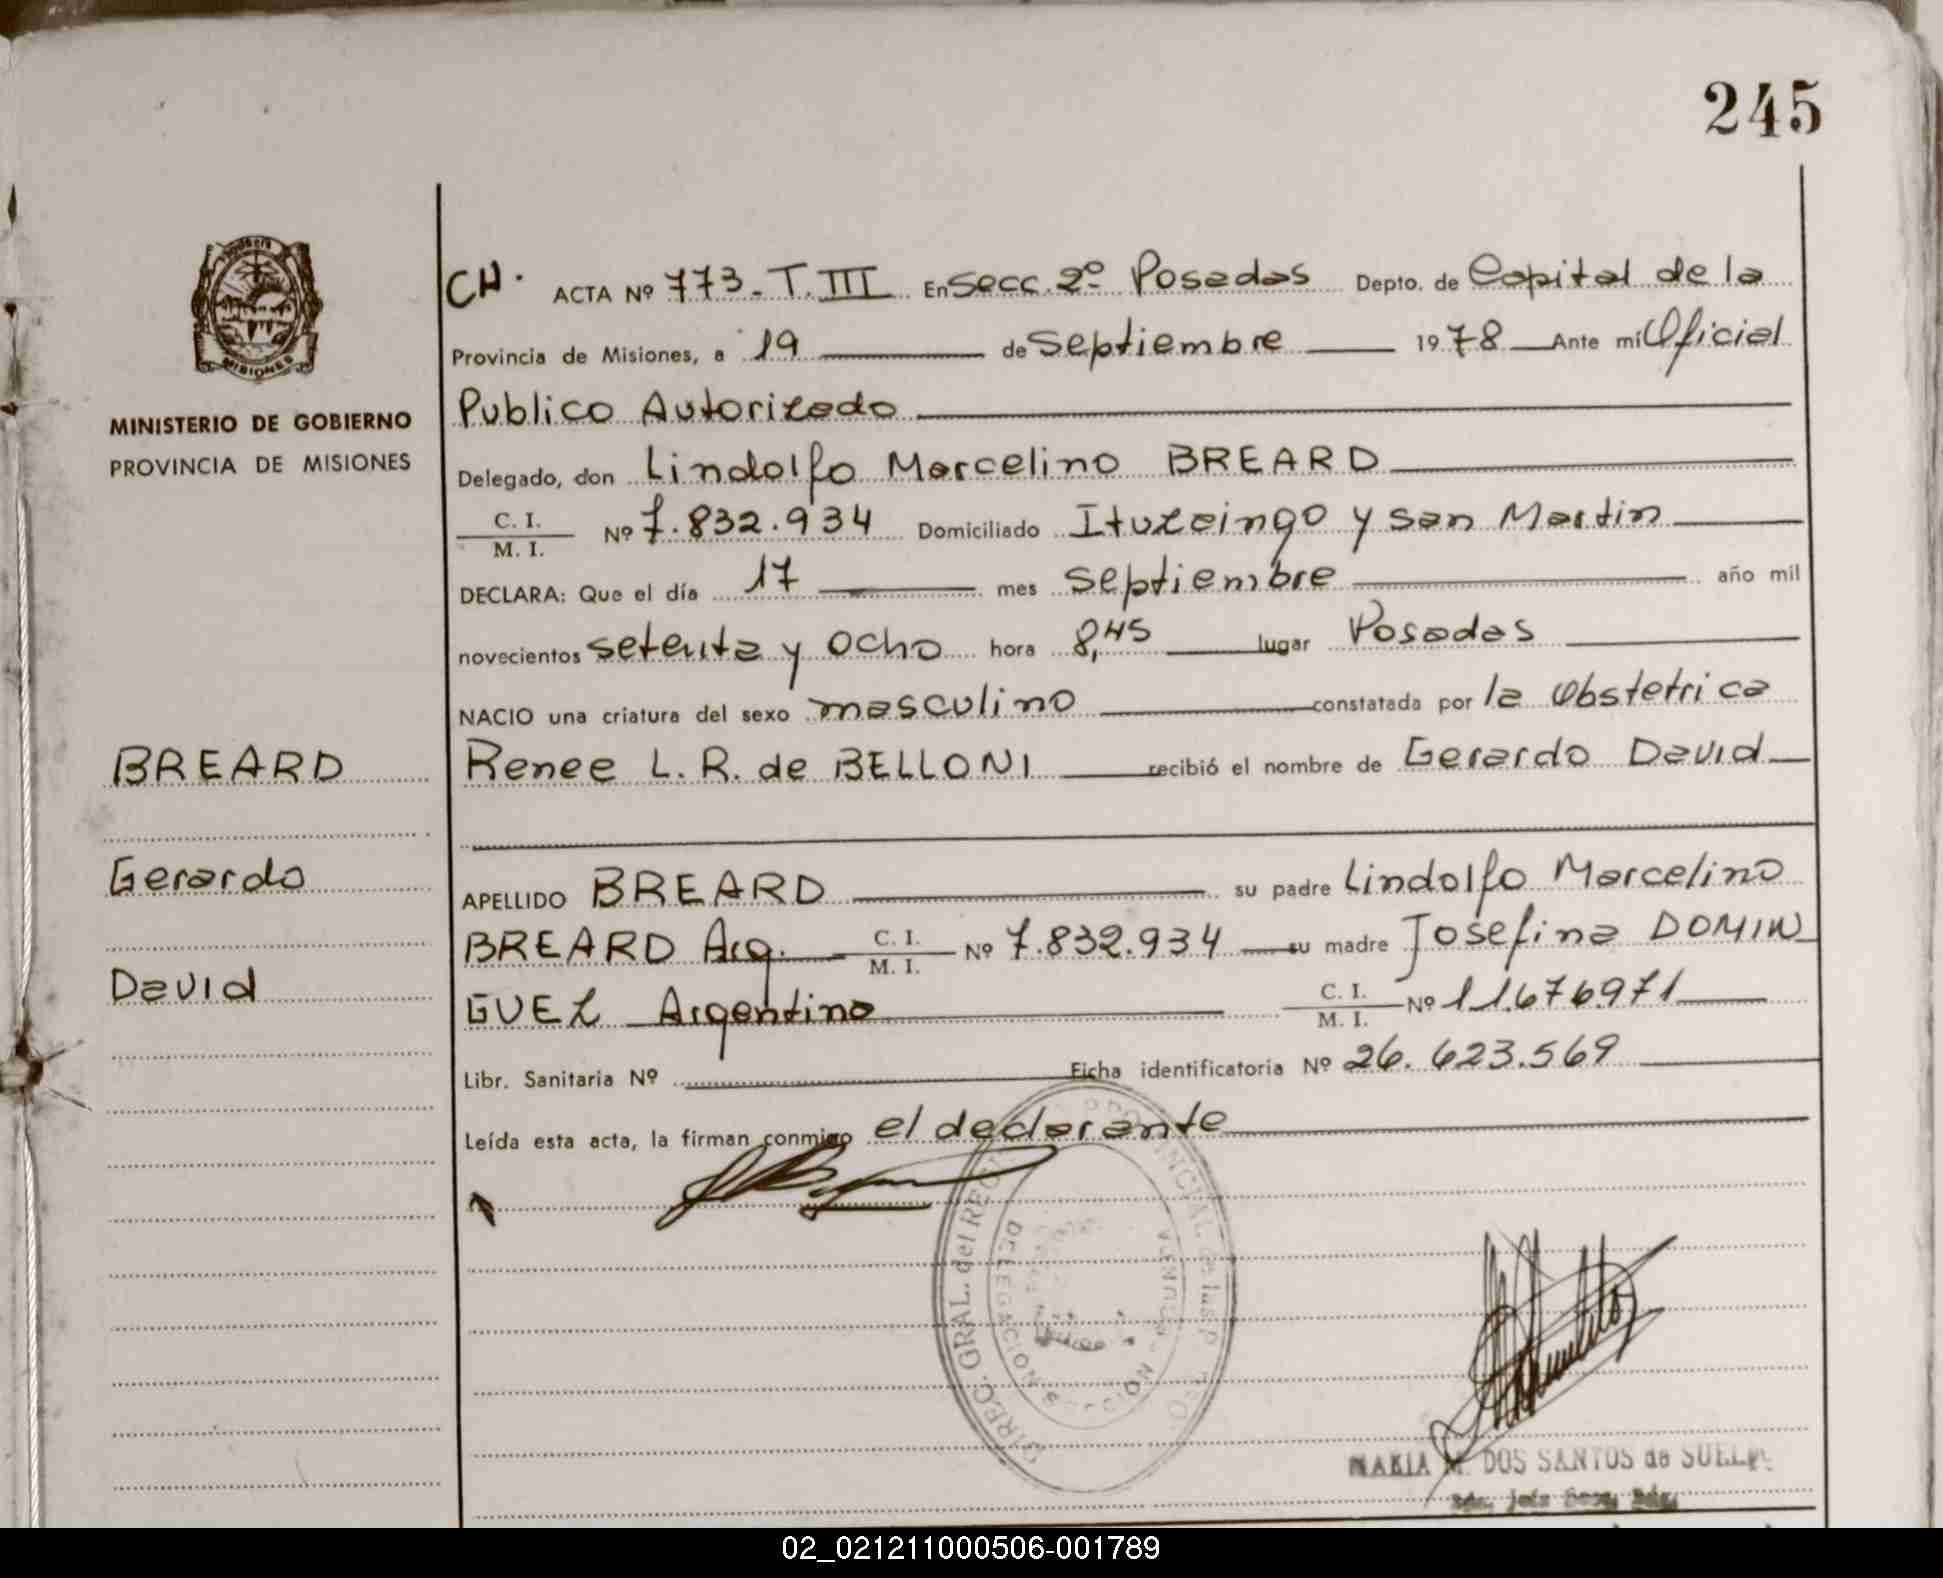 245
MISIONES
MINISTERIO DE GOBIERNO
PROVINCIA DE MISIONES
BREARD
Gerardo
David
CH. ACTA Nº 773-T.III En Secc. 2º Posadas Depto. de Capital de la
Provincia de Misiones, a 19 de Septiembre 1978 Ante mi Oficial
Publico Autorizado
Delegado, don Lindolfo Marcelino BREARD
C. I.
M. I. Nº 7.832.934 Domiciliado Ituzaingo y San Martin
DECLARA: Que el día 17 mes Septiembre año mil
novecientos setenta y ocho hora 8,45 lugar Posadas
NACIO una criatura del sexo masculino constatada por la Obstetrica
Renee L. R. de BELLONI recibió el nombre de Gerardo David
APELLIDO BREARD su padre Lindolfo Marcelino
BREARD Arg. C. I. M. I. Nº 7.832.934 su madre Josefina DOMIN
GUEZ Argentina C. I. M. I. Nº 11.676.971
Libr. Sanitaria Nº Ficha identificatoria Nº 26.623.569
Leída esta acta, la firman conmigo el declarante
DIREC. GRAL. del REG. PROVINCIAL de las P.
DELEGACION SECCION
MARIA M. DOS SANTOS de
02_021211000506-001789